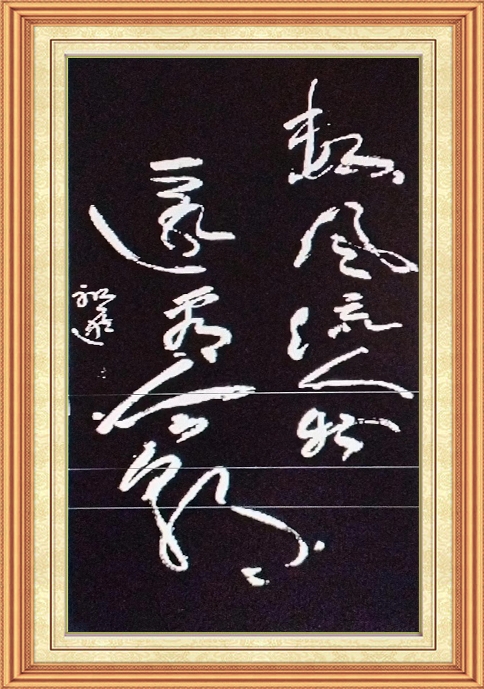 数风流人物
還看今朝